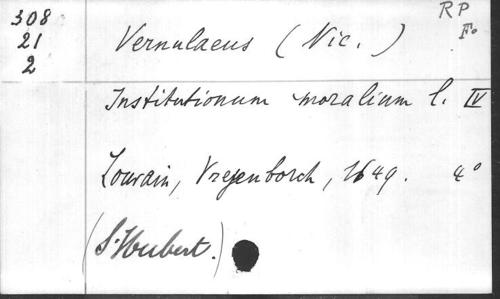 308
21
2
RP
Fo
Vernulaeus (Nic.)
Institutionum moralium l. IV
Louvain, Vryenborch, 1649. 4°
(S. Hubert.)